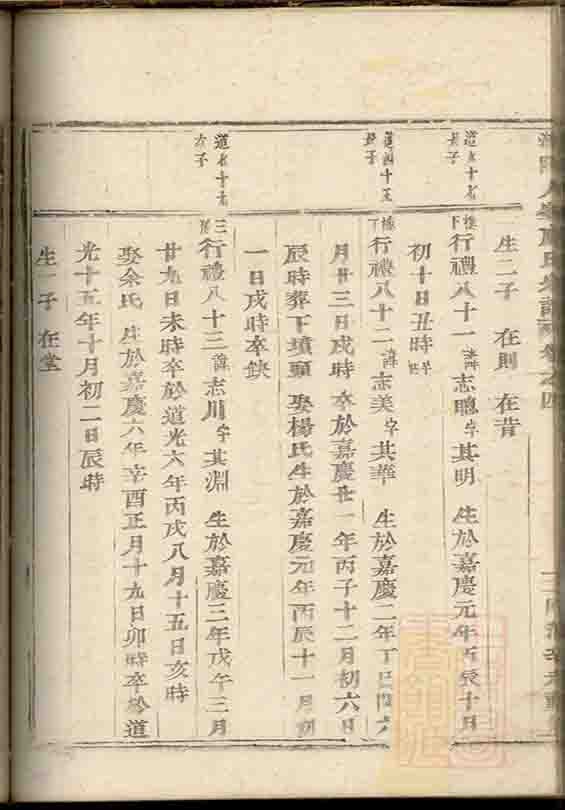 生二子 在則 在昔
道五十 長子
樓下 行禮八十一 諱志聰 字其明 生於嘉慶元年丙辰十月
初十日丑時
道四十五 長子
樓下 行禮八十二 諱志美 字其華 生於嘉慶二年丁巳閏六
月廿三日戌時 卒於嘉慶廿一年丙子十二月初六日
辰時葬下墳頭 娶楊氏生於嘉慶元年丙辰十一月初
一日戌時卒缺
道 次子
行禮八十三 諱志川 字其淵 生於嘉慶三年戊午三月
廿九日未時卒於道光六年丙戌八月十五日亥時
娶余氏 生於嘉慶六年辛酉正月十九日卯時卒於道
光十五年十月初二日辰時
生一子 在堂